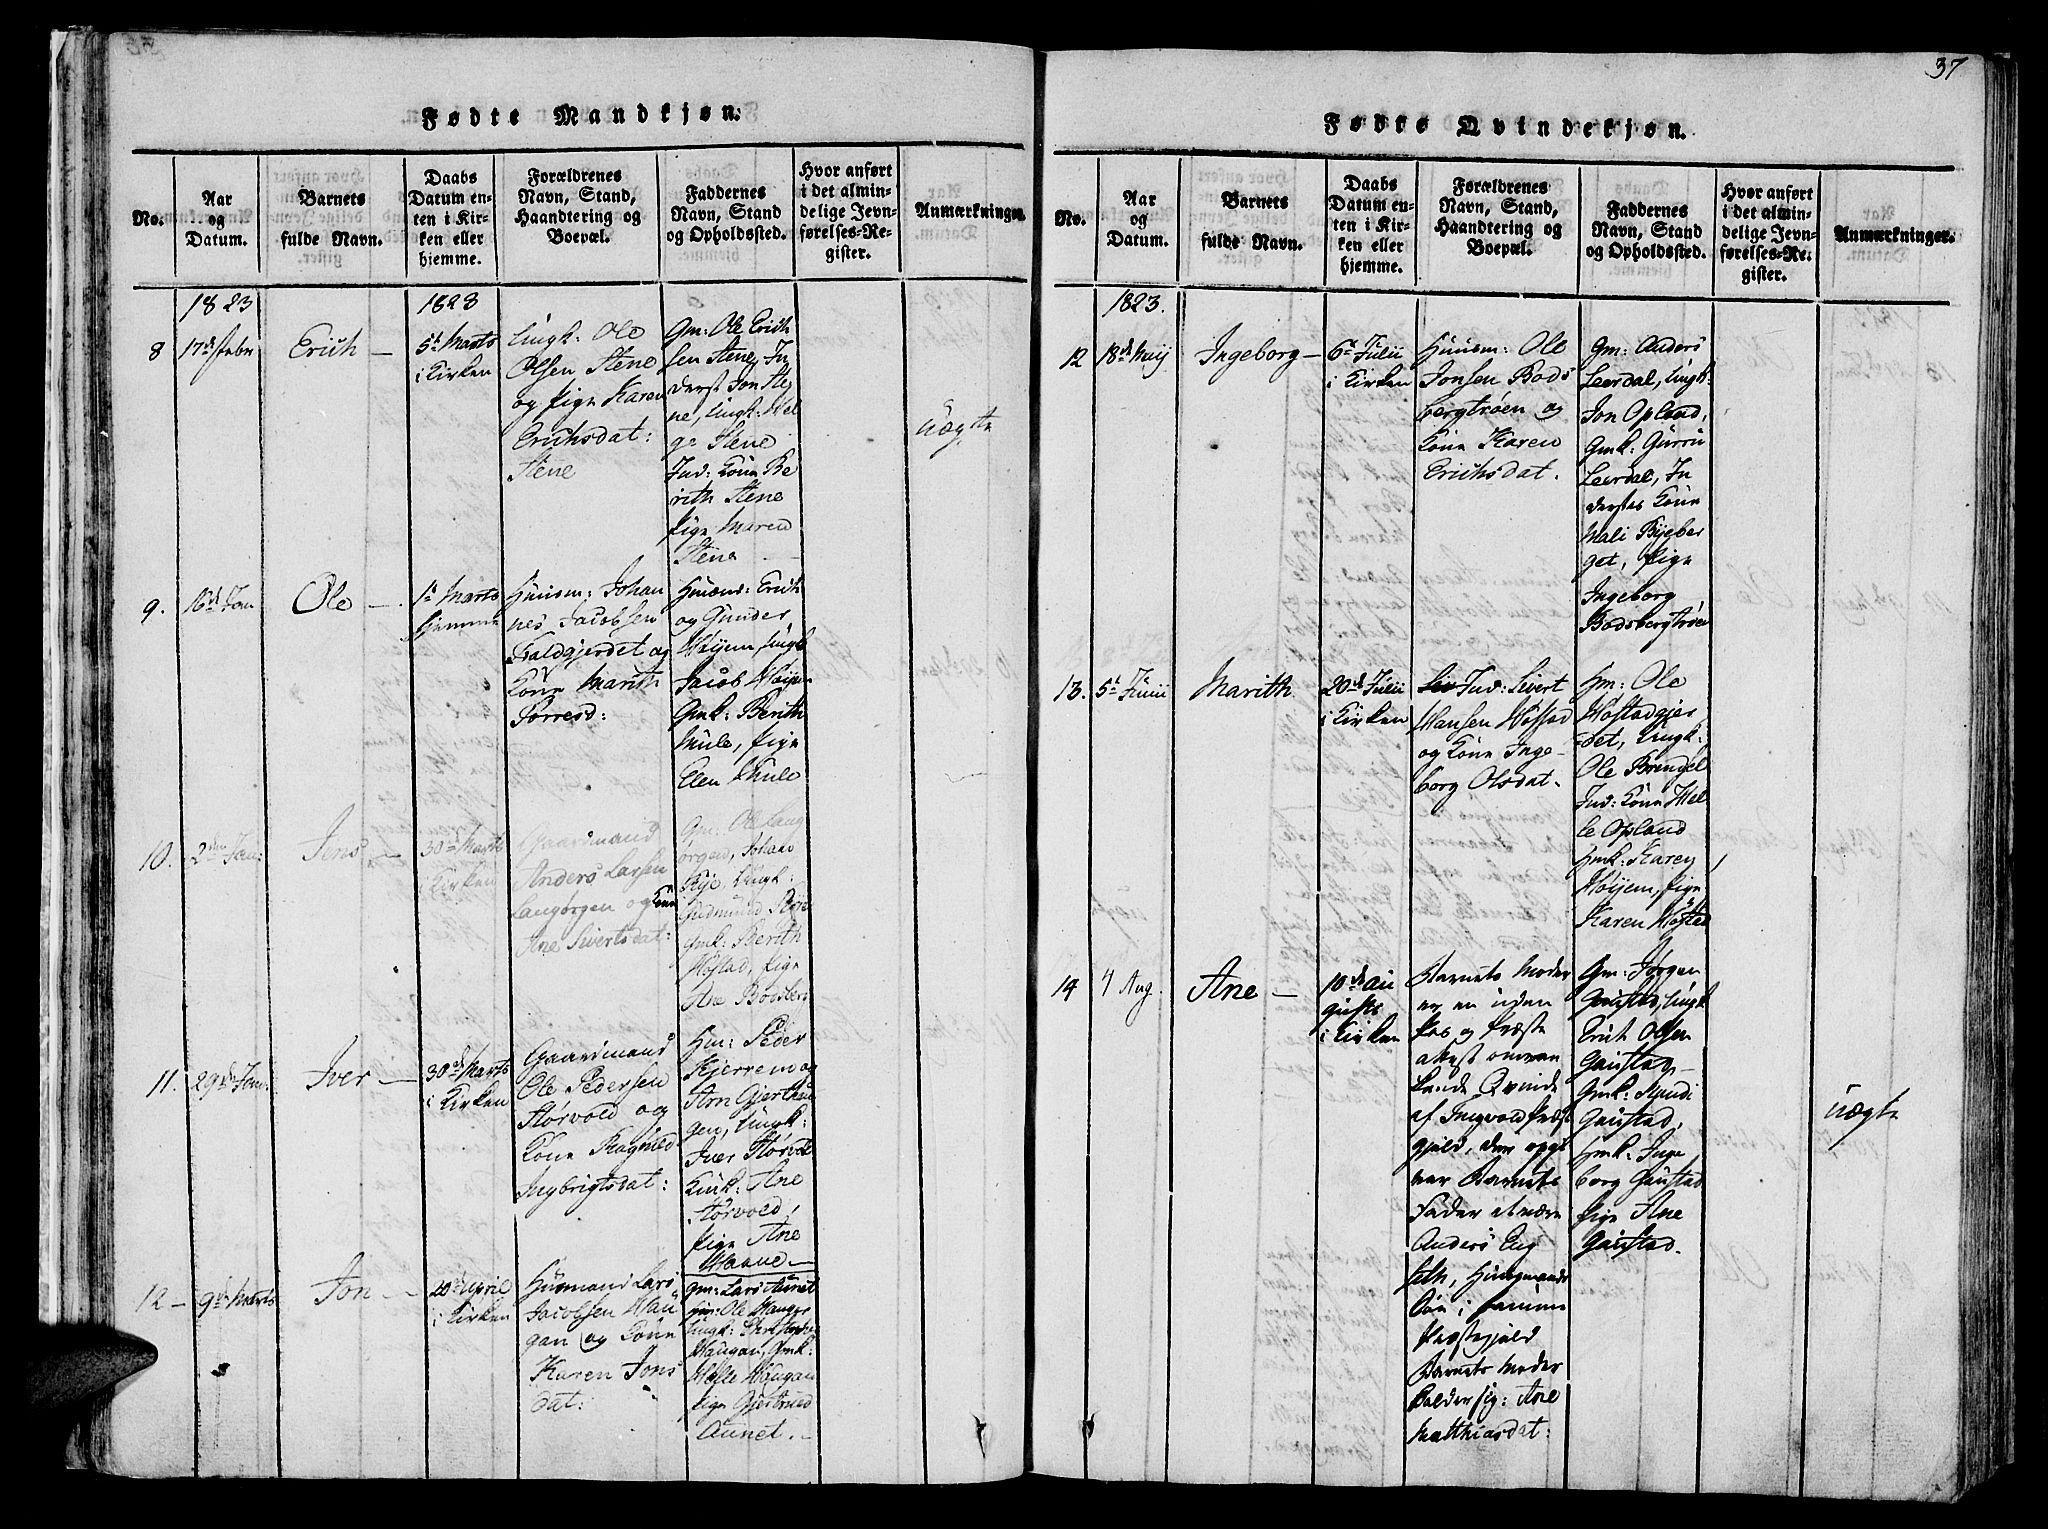 37
Fødte Mandkjøn.
No.
Aar
og
Datum.
Barnets
fulde Navn.
Daabs
Datum en-
ten i Kir-
ken eller
hjemme.
Forældrenes
Navn, Stand,
Haandtering og
Boepæl.
Faddernes
Navn, Stand
og Opholdssted.
Hvor anført
i det almin-
delige Jevn-
førelses-Re-
gister.
Anmærkninger.
1823
1823
8
17de Febr
Erich —
5te Marts
i Kirken
Ungk: Ole
Olsen Stene
og Pige Karen
Erichsdat:
Stene
Gm: Ole Erich
sen Stene, In
derst Jon Ste
ne, Ungk: Hel
ge Stene
Ind: Kone Be
rith Stene
Pige Maren
Stene
uægte
9.
16de Jan
Ole —
1te Marts
hjemme
Huusm: Johan
nes Jacobsen
Faldgjerdet og
Kone Marith
Torresd:
Hmænd: Erich
og Gunder
Høijem, Ungk
Jacob Høijem
Gmk: Berith
Mule, Pige
Elen Mule
10.
2den Jan:
Jens —
30te Marts
i Kirken
Gaardmand
Anders Larsen
Langørgen og Kone
Ane Sivertsdat:
Gm: Ole Lang
ørgen, Johan
Rye, Ungk:
Gudmund Rye
Gmk: Berith
Høstad, Pige
Ane
11.
29de Jan:
Iver —
30te Marts
i Kirken
Gaardmand
Ole Pedersen
Størvold og
Kone Ragnild
Ingbrigtsdat:
Hm: Peder
Kjerrem og
Arn
gen, Ungk:
Iver Størvold
Gmk: Ane
Størvold,
Pige Ane
12 —
9de Marts
Jon —
20de April
i Kirken
Husmand Lars
Jacobsen Hau
gan og Kone
Karen Jons
dat:
Gm: Lars Aunet
Hm: Ole Haugan
Ungk: Christopher
Haugan, Gmk:
Helle Haugan
Pige Gjertrued
Aunet. —
Fødte Qvindekjøn.
No.
Aar
og
Datum.
Barnets
fulde Navn.
Daabs
Datum en-
ten i Kir-
ken eller
hjemme.
Forældrenes
Navn, Stand,
Haandtering og
Boepæl.
Faddernes
Navn, Stand
og Opholdssted.
Hvor anført
i det almin-
delige Jevn-
førelses-Re-
gister.
Anmærkninger.
1823.
12
18de Maij
Ingeborg —
6te Julii
i Kirken
Huusm: Ole
Jonsen Bods
bergtrøen og
Kone Karen
Erichsdat.
Gm: Anders
Leerdal, Ungk:
Jon Opland,
Gmk: Gurru
Leerdal, In
derstes Kone
Mali Byeber
get, Pige
Ingeborg
Bodsbergtrøen
13.
5te Junii
Marith
20de Julii
i Kirken
Siv Ind: Sivert
Hansen Høstad
og Kone Inge-
borg Olsdat.
Hm: Ole
Høstadgjer
det, Ungk:
Ole Brengel
Ind: Kone Hel
le Opland
Hmk: Karen
Høijem, Pige
Karen Høstad
14
4 Aug.
Ane —
10de Au
gusts
i Kirken
Barnets Moder
er en uden
Pas og Præste
attest omvan
kende Qvinde
af Tingvold Præst
gjeld, der opgi
ver Barnets
Fader at være
Anders Eng
seth, Huusmands
Søn i samme
Præstegjeld
Barnets Moder
kalder sig: Ane
Matthiasdat:
Gm: Jørgen
Gaustad, Ungk
Erik Olsen
Gaustad —
Gmk: Randi
Gaustad,
Hmk: Inge
borg Gaustad
Pige Ane
Gaustad.
uægte